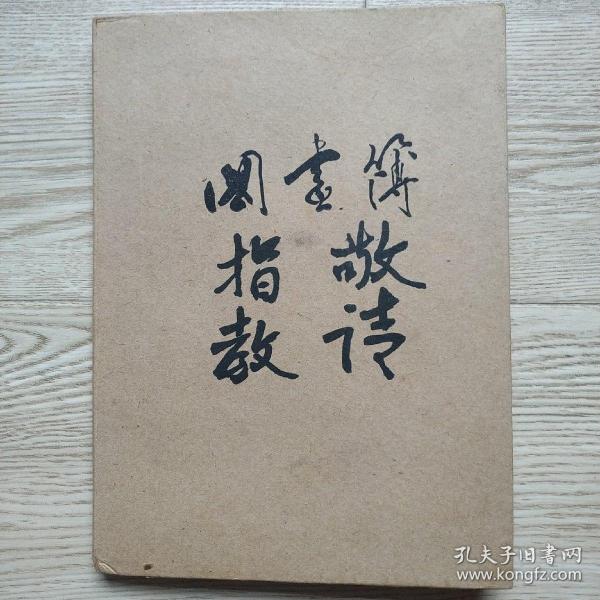 畫簿
敬请
指教
孔夫子旧書网
www.kongfz.com